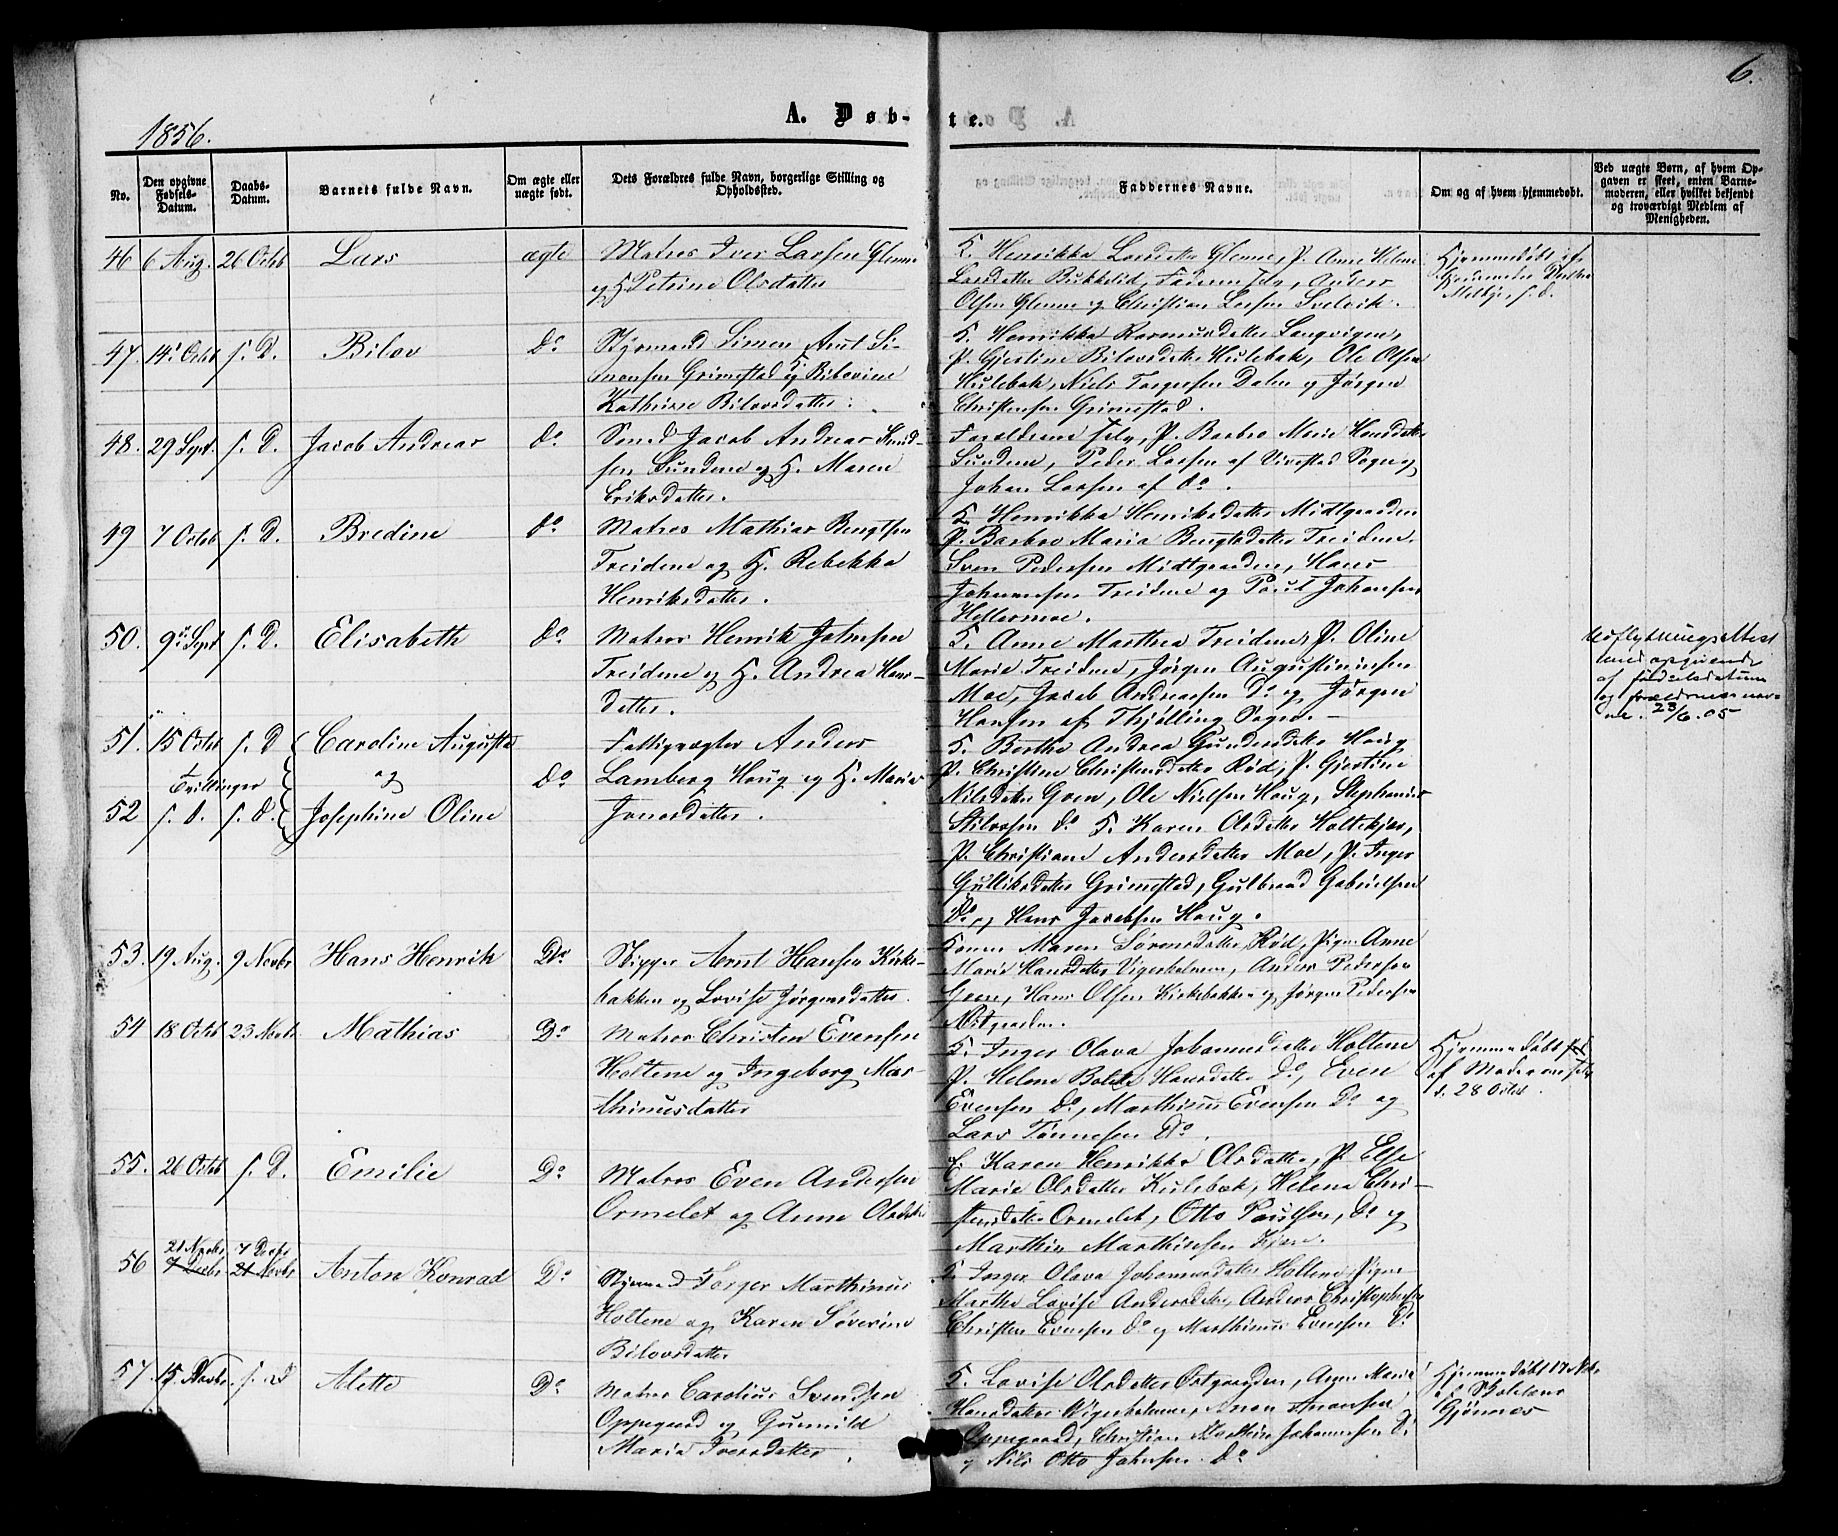 6.
1856.
A. Døb-te.
No.
Den opgivne Fødsels-Datum.
Daabs-Datum.
Barnets fulde Navn.
Om ægte eller uægte født.
Dets Forældres fulde Navn, borgerlige Stilling og Opholdssted.
Faddernes Navne.
Om og af hvem hjemmedøbt.
Ved uægte Børn, af hvem Opgaven er skeet, enten Barnemoderen, eller hvilket bekjendt og troværdigt Medlem af Menigheden.
46 6 Aug. 26 Octb Lars ægte Matros Iver Larsen Glenne
og H. Petrine Olsdatter
K. Henrikka Larsdatter Glenne, P. Anne Helene
Larsdatter Bukkelid, Faderen selv, Anders
Olsen Glenne og Christian Larsen Svelvik.
Hjemmedøbt af
47. 14 Octb s. D. Bilov Do Styrmand Simen Arnt Si-
monsen Grimestad og K. Bilovine
Kathrine Bilovsdatter.
K. Henrikka Rasmusdatter Sangvigen,
P. Gjertine Bilovsdatter Hulebak, Ole Olsen
Hulebak, Niels Torgersen Dalen og Jørgen
Christensen Grimestad.
48. 29 Sept. s. D. Jacob Andreas Do Smed Jacob Andreas Knud-
sen Sundene og H. Maren
Eriksdatter.
Forældrene selv, P. Barbro Marie Hansdatter
Sundene, Peder Larsen af Vivestad Sogn og
Johan Larsen af do.
49 7 Octob s. D. Bredine do Matros Mathias Bengtsen
Treidene og H. Rebekka
Henriksdatter.
K. Henrikka Henriksdatter Midtgaarden
P. Barbro Maria Bengtsdatter Treidene.
Sven Pedersen Midtgaarden, Hans
Johannesen Treidene og Poul Johansen
50. 9 Sept s. D. Elisabeth do Matros Henrik Johnsen
Treidene og H. Andrea Hans-
datter.
K. Anne Marthea Treidene, P. Oline
Marie Treidene, Jørgen Augustiniusen
Moe, Jacob Andreasen Do og Jørgen
Hansen af Thjølling Sogn.
Udflytningsattest
med opgivende
af fødselsdatum
og forældrenes nav-
ne. 23/6.05
51. 15 Octob s. D Caroline Augusta
Tvillinger og Do
52 s. D. s. D. Josephine Oline
Fattigvægter Anders
Lamberg Haug og H. Maria
Jonasdatter.
K. Berthe Andrea Gundersdatter Haug
P. Christine Christensdatter Rød, P. Gjertine
Nilsdatter Gven, Ole Nielsen Haug, Stephanius
do K. Karen Olsdatter Holtekjær,
P. Christiane Andersdatter Moe, P. Inger
Gulliksdatter Grimestad, Gulbrand Gabrielsen
Do, og Hans Jacobsen Haug.
53. 19 Aug. 9 Novbr Hans Henrik Do Skipper Arnt Hansen Kirke-
bakken og Lovise Jørgensdatter.
Konen Maren Sørensdatter Rød, Pigen Anne
Marie Hansdatter Vigerholmen, Anders Pedersen
Hans Olsen Kirkebakken og Jørgen Pedersen
54 18 Octb 23 Novb. Mathias Do Matros Christen Evensen
Holtene og Ingeborg Mar-
thinusdatter
K. Inger Olava Johannesdatter Holtene
P. Helene Hansdatter Do, Even
Evensen Do, Marthinus Evensen Do og
Lars Tønnesen Do.
Hjemmedøbt
af Moderen selv
d. 28 Octob.
55. 26 Octb s. D. Emilie Do Matros Even Andersen
Ormelet og Anne Olsdatter
K. Karen Henrikka Olsdatter, P. Else
Marie Olsdatter Hulebak, Helena Chri-
stensdatter Ormelet, Otto Paulsen, Do og
Marthin Marthinsen Kjære.
56 21 Novbr 7 Decbr Anton Konrad Do Styrmand Torger Marthinus
Holtene og Karen Severine
Bilovsdatter
K. Inger Olava Johannesdatter Holtene, Pigen
Marthe Lovise Andersdatter, Anders Christophersen
Christen Evensen Do og Marthinus Evensen Do
57. 15 Novbr. s. D Alette Do Matros Carolius Svendsen
Oppegaard og Gunnild
Maria Iversdatter.
K. Lovise Olsdatter Østgaarden, Anne Marie
Hansdatter Vigerholmen,
Oppegaard, Christian Johannesen Do
og Nils Otto Johnsen Do
Hjemmedøbt 17 Nov.
af Skolelærer
Gjønnes